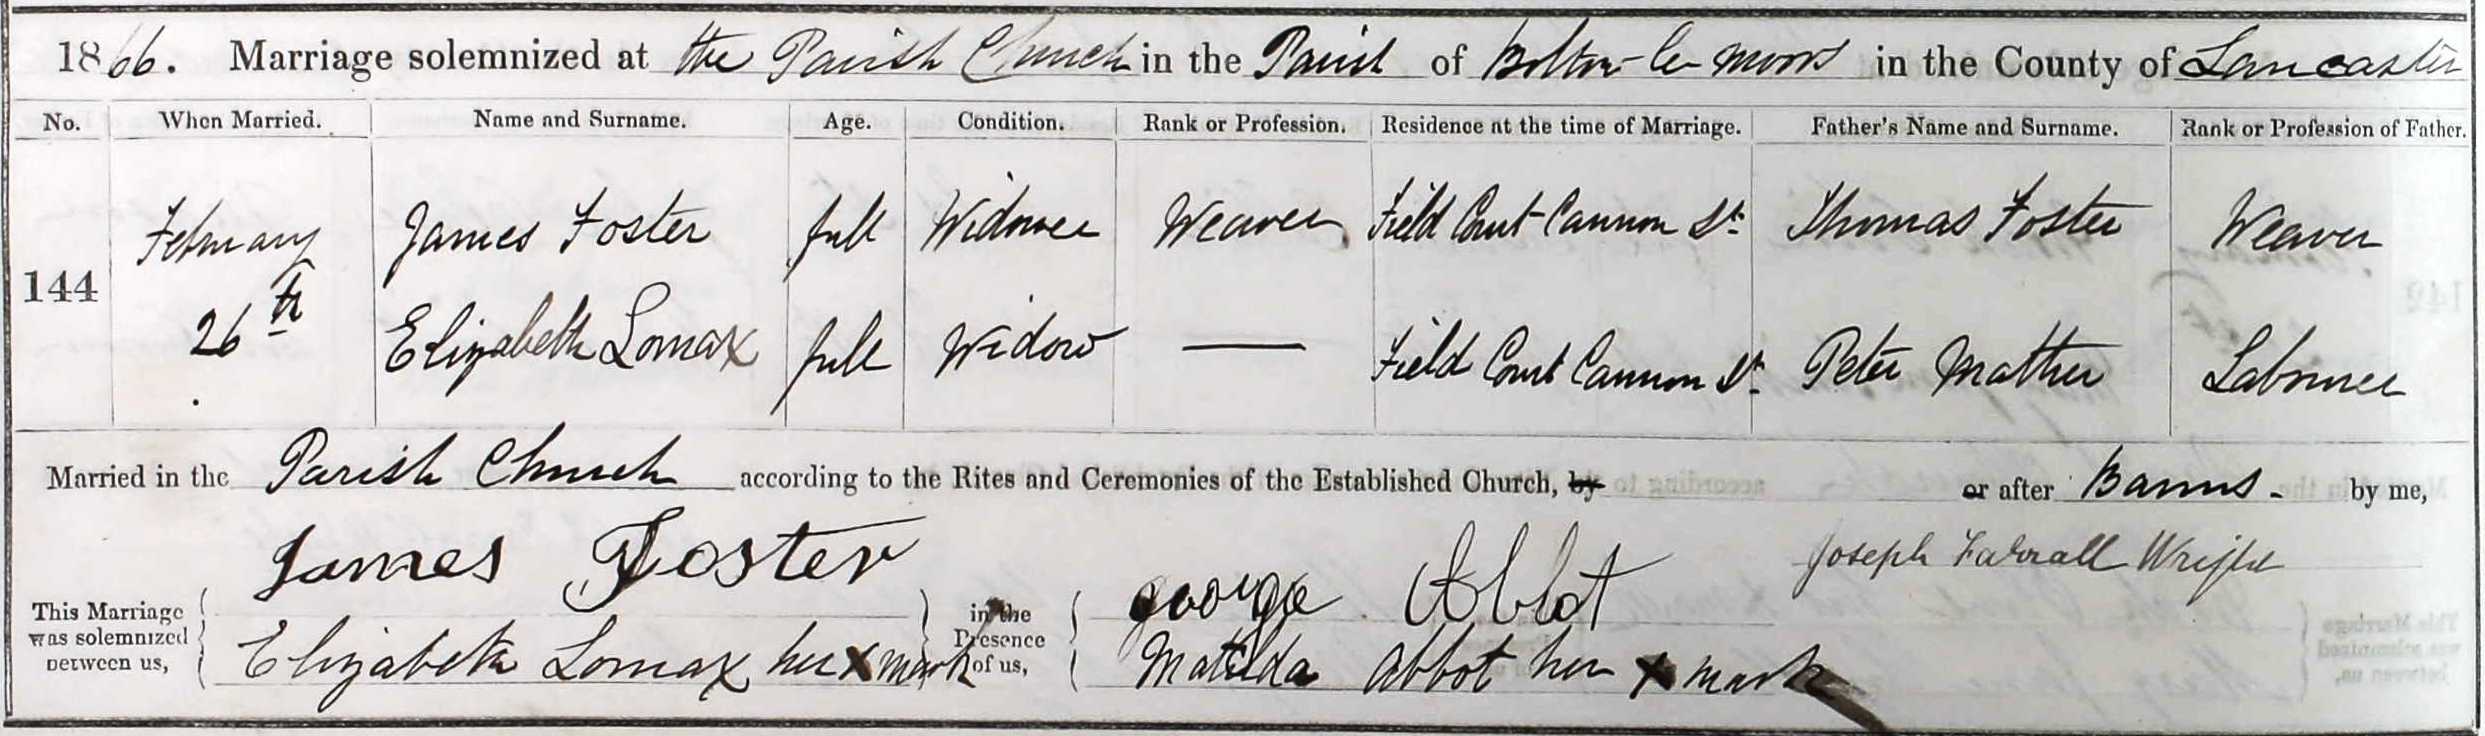 1866. Marriage solemnized at the Parish Church in the Parish of Bolton-le-moors in the County of Lancaster
No. When Married. Name and Surname. Age. Condition. Rank or Profession. Residence at the time of Marriage. Father's Name and Surname. Rank or Profession of Father.
144 February 26th James Foster full Widower Weaver Field Court Cannon St. Thomas Foster Weaver
Elizabeth Lomax full Widow — Field Court Cannon St. Peter Mather Labourer
Married in the Parish Church according to the Rites and Ceremonies of the Established Church, by or after Banns. by me,
James Foster George Abbot Joseph Wright
This Marriage was solemnized between us, in the Presence of us,
Elizabeth Lomax her x mark Matilda Abbot her x mark